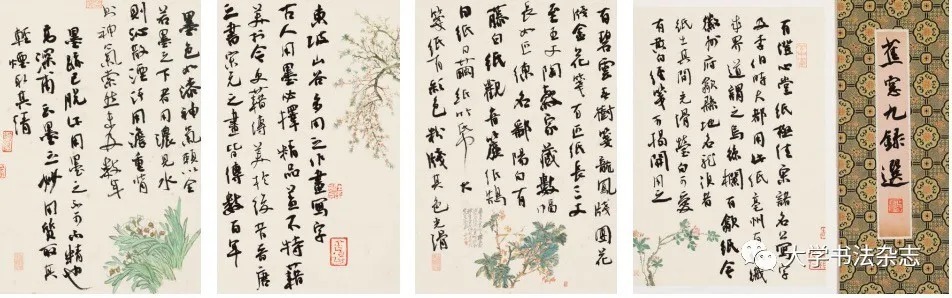 蕉窓九錄選
有澄心堂紙極佳宋諸名公寫字
及李伯時大都用此紙亳州有織
成界道謂之烏絲欄有歙紙今
徽州府歙縣地名龍須者
紙出其間光滑瑩白可愛
有黃白經箋可揭開用之
有碧雲春樹箋龍鳳牋團花
牋金花箋有匹紙長三丈
至五丈陶穀家藏數幅
長如匹練名鄱陽白有
藤白紙觀音簾紙鵠
白紙蠶繭紙竹紙大
箋紙有彩色粉牋其色光滑
東坡山谷多用之作畫寫字
古人用墨必擇精品蓋不特藉
美於今更藉傳美於後昔晉唐
之書宋元之畫皆傳數百年
墨色如漆神氣賴以全
若墨之下者用濃見水
則沁散湮污用淡重背
則神氣索然未及數年
墨跡已脫此用墨之不可不精也
高深甫云墨之妙用質取其
輕煙取其清
大学书法杂志